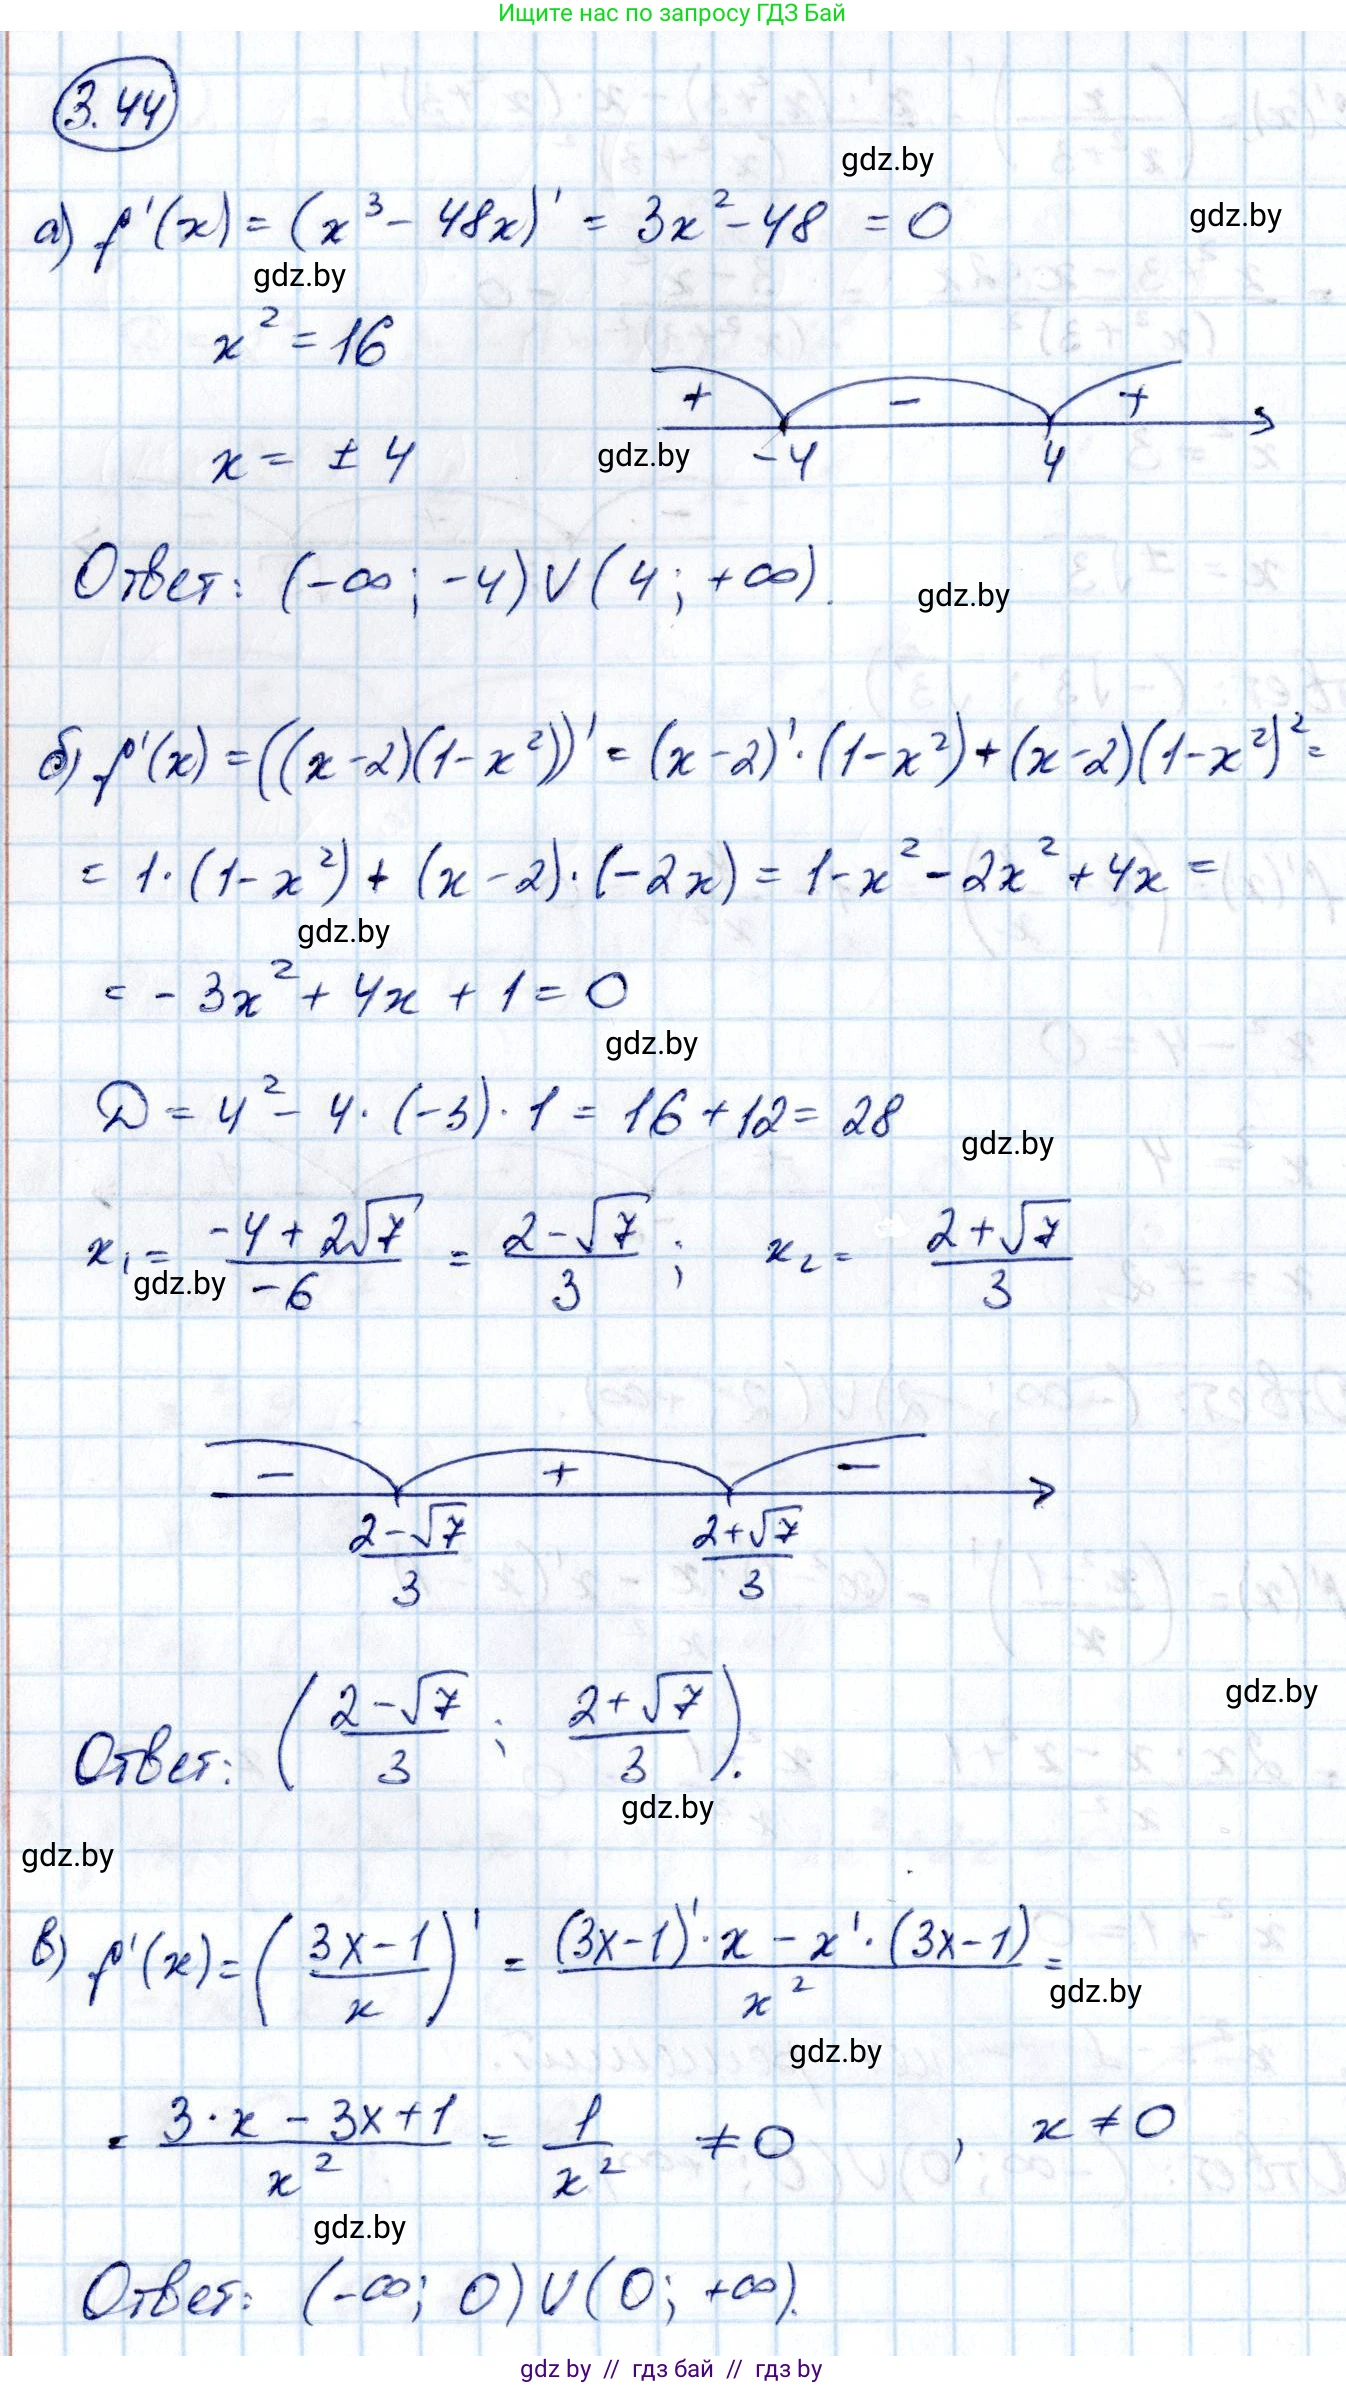 Ищите нас по запросу ГДЗ Бай
3.44
gdz.by
а) f'(x) = (x³ - 48x)' = 3x² - 48 = 0
gdz.by
gdz.by
x² = 16
+ - +
x = ± 4
gdz.by
-4 4
Ответ: (-∞; -4) ∪ (4; +∞).
gdz.by
б) f'(x) = ((x-2)(1-x²))' = (x-2)'·(1-x²)+(x-2)(1-x²)² =
= 1·(1-x²) + (x-2)·(-2x) = 1-x² - 2x² + 4x =
gdz.by
= - 3x² + 4x + 1 = 0
gdz.by
D = 4² - 4·(-3)·1 = 16 + 12 = 28
gdz.by
x₁ = (-4 + 2√7)/(-6) = (2 - √7)/3 ; x₂ = (2 + √7)/3
gdz.by
- + -
(2 - √7)/3 (2 + √7)/3
gdz.by
Ответ: ((2 - √7)/3 ; (2 + √7)/3).
gdz.by
gdz.by
в) f'(x) = ((3x-1)/x)' = ((3x-1)'·x - x'·(3x-1))/x² =
gdz.by
gdz.by
= (3·x - 3x + 1)/x² = 1/x² ≠ 0 , x ≠ 0
gdz.by
Ответ: (-∞; 0) ∪ (0; +∞).
gdz by // гдз бай // гдз by